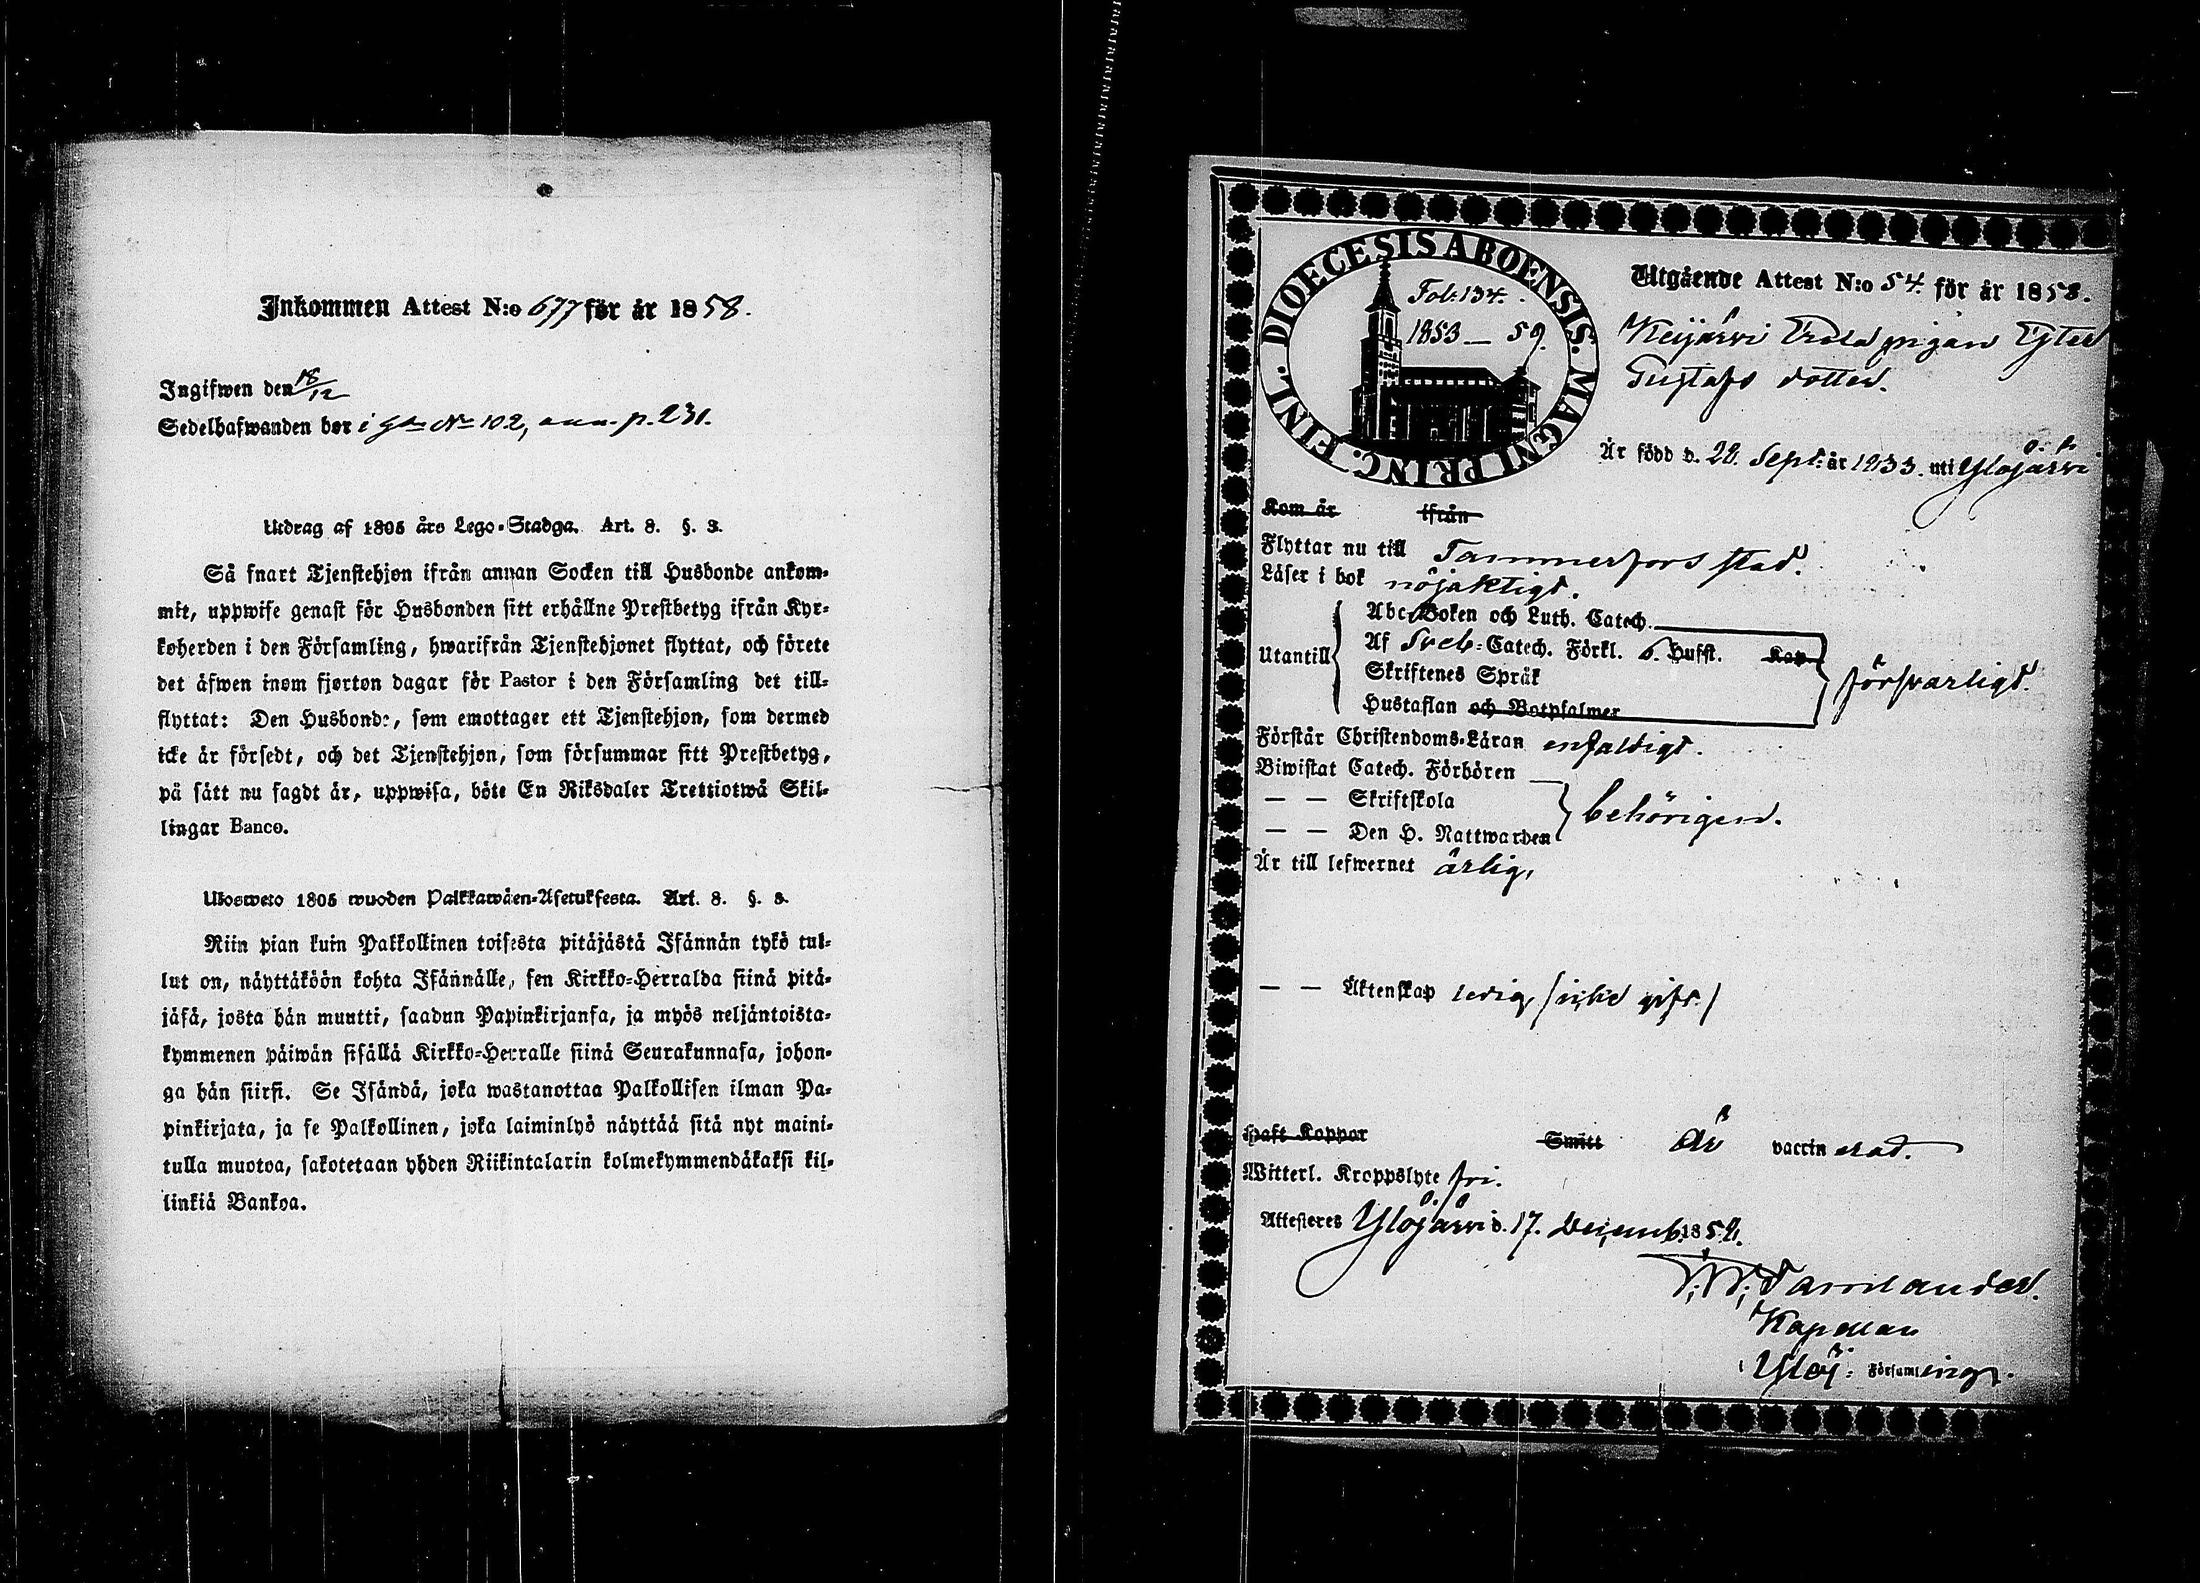 Inkommen Attest N:o 677 för år 1858.
Ingifwen den 18/12
Sedelhafwanden bor i gd No 102, p. 231.
Utdrag af 1805 års Lego-Stadga. Art. 8. §. 3.
Så snart Tjenstehjon ifrån annan Socken till Husbonde ankom-
mit, uppwise genast för Husbonden sitt erhållne Prestbetyg ifrån Kyr-
koherden i den Församling, hwarifrån Tjenstehjonet flyttat, och förete
det äfwen inom fjorton dagar för Pastor i den Församling det till-
flyttat: Den Husbonde, som emottager ett Tjenstehjon, som dermed
icke är försedt, och det Tjenstehjon, som försummar sitt Prestbetyg,
på sätt nu sagdt är, uppwisa, böte En Riksdaler Trettiotwå Skil-
lingar Banco.
Ulosweto 1805 wuoden Palkkawäen-Asetuksesta. Art. 8. §. 3.
Niin pian kuin Palkollinen toisesta pitäjästä Isännän tykö tul-
lut on, näyttäköön kohta Isännälle, sen Kirkko-Herralda siinä pitä-
jäsä, josta hän muutti, saadun Papinkirjansa, ja myös neljäntoista-
kymmenen päiwän sisällä Kirkko-Herralle siinä Seurakunnasa, johon-
ga hän siirsi. Se Isändä, joka wastanottaa Palkollisen ilman Pa-
pinkirjata, ja se Palkollinen, joka laiminlyö näyttää sitä nyt maini-
tulla muotoa, sakotetaan yhden Riikintalarin kolmekymmendäkaksi kil-
linkiä Bankoa.
DIOECESIS ABOENSIS. MAGNI PRINC. FINL.
Fol: 134.
1853 — 59.
Utgående Attest N:o 54. för år 1858.
Keijärvi pigan
Gustafs dotter.
Är född d. 28. Sept: år 1833. uti Ylöjärvi
Kom år ifrån
Flyttar nu till Tammerfors stad.
Läser i bok nöjaktigt.
Utantill
Abc-Boken och Luth. Catech.
Af Sveb: Catech. Förkl. 6. Hufst. Kap
Skriftenes Språk
Hustaflan och Botpsalmer
försvarligt.
Förstår Christendoms-Läran enfaldigt.
Biwistat Catech. Förhören
— — Skriftskola
— — Den H. Nattwarden
behörigen.
Är till lefwernet ärlig,
— — Äktenskap ledig, /icke gift./
Haft Koppor Smitt är vaccin erad.
Witterl. Kroppslyte fri.
Attesteres Ylöjärvi d. 17. Decemb. 1858.
Kapellan
Ylöj: Församlings.